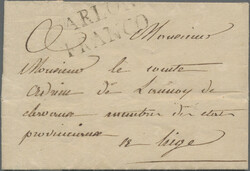 ARLON
FRANCO
A Monsieur
Monsieur le comte
de Lannoy de
clervaux membre de etat
provinciaux
a Liége